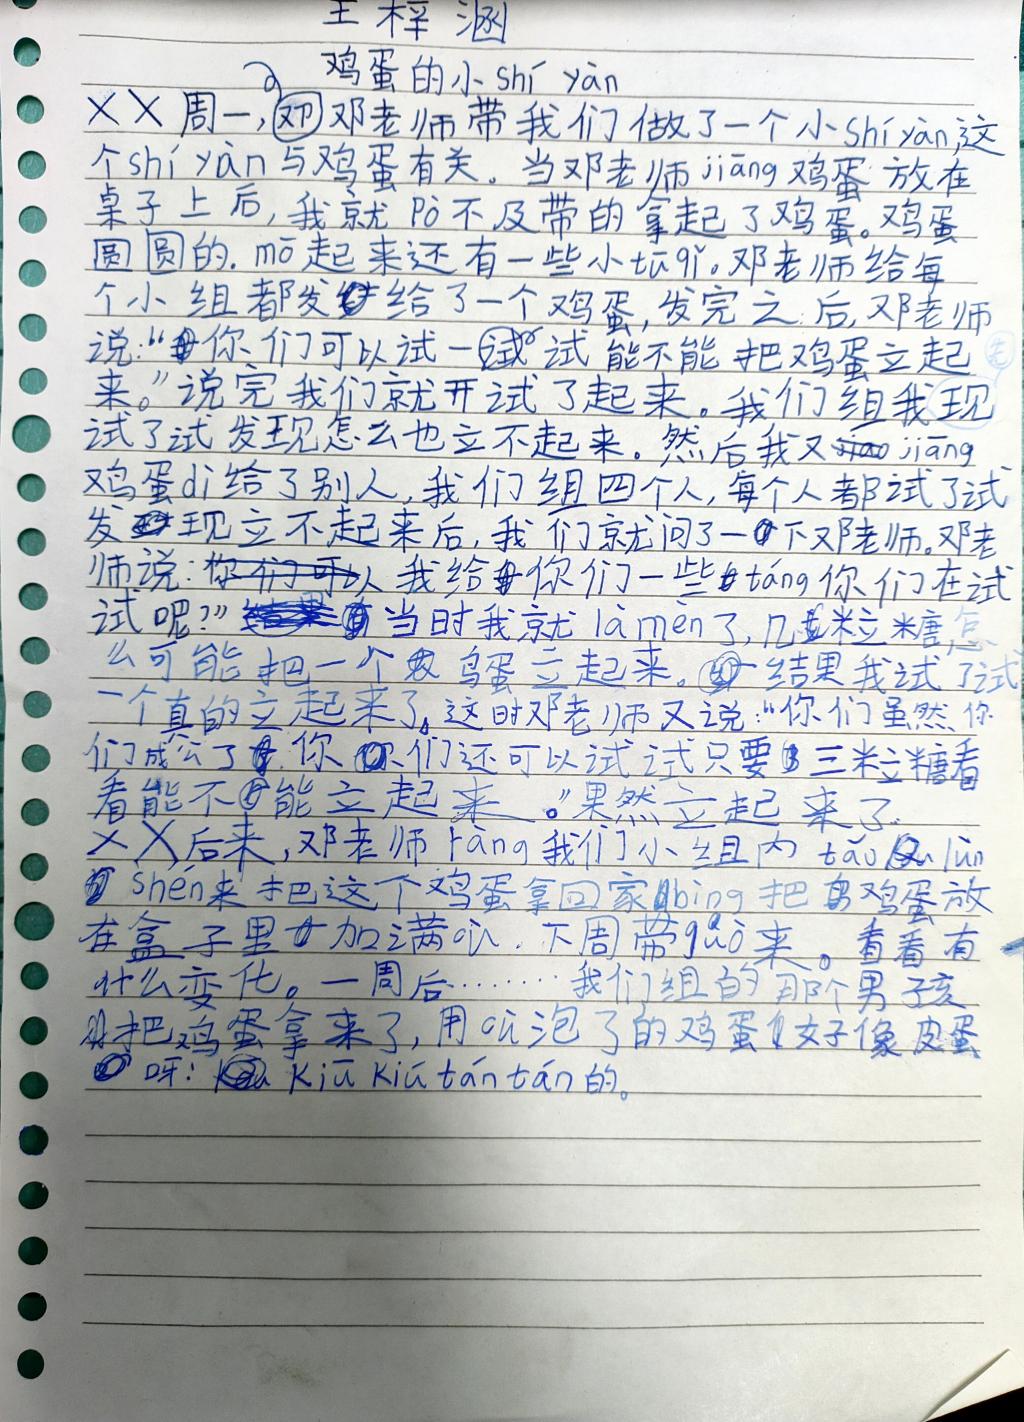 王梓涵
鸡蛋的小shí yàn
××周一,邓老师带我们做了一个小shí yàn,这
个shí yàn与鸡蛋有关。当邓老师jiāng鸡蛋放在
桌子上后,我就Pò不及带的拿起了鸡蛋。鸡蛋
圆圆的.mō起来还有一些小tū qǐ。邓老师给每
个小组都发给了一个鸡蛋,发完之后,邓老师
说:“你们可以试一试能不能把鸡蛋立起
来。”说完我们就开试了起来。我们组我先
试了试发现怎么也立不起来。然后我又jiāng
鸡蛋dì给了别人,我们组四个人,每个人都试了试
发现立不起来后,我们就问了一下邓老师。邓老
师说:我给你们一些táng你们在试
试呢?”当时我就là mèn了,几粒糖怎
么可能把一个鸡蛋立起来。结果我试了试
一个真的立起来了。这时邓老师又说:“你们虽然你
们成公了.你们还可以试试只要三粒糖看
看能不能立起来。”果然立起来了.
××后来,邓老师ràng我们小组内tǎo lùn
shén来把这个鸡蛋拿回家bìng把鸡蛋放
在盒子里加满cù.下周带guò来。看看有
什么变化。一周后………我们组的那个男孩
把鸡蛋拿来了,用cù泡了的鸡蛋好像皮蛋
呀!Kiū Kiū tán tán的。